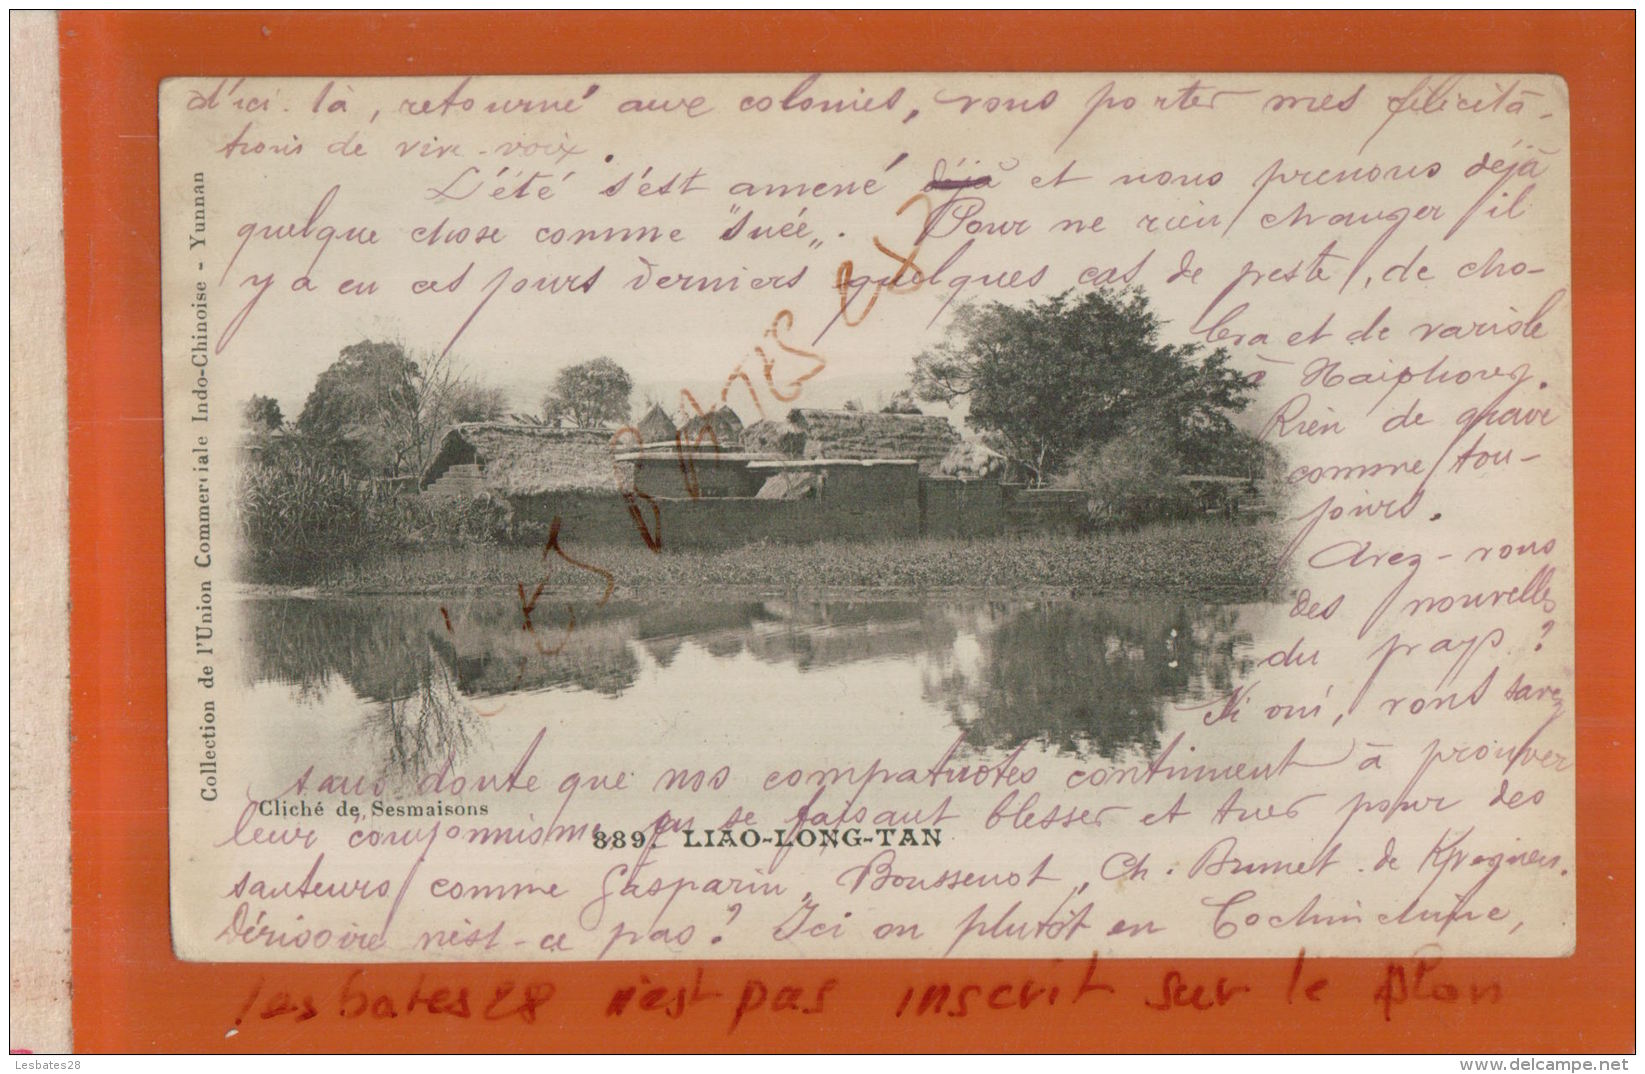 d'ici là, retourné aux colonies, vous porter mes félicita-
tions de vive-voix.
L'été s'est amené déjà et nous prenons déjà
quelque chose comme "suée„. Pour ne rien changer il
y a eu ces jours derniers quelques cas de peste, de cho-
lera et de variole
à Haiphong.
Rien de grave
comme tou-
jours.
Avez-vous
des nouvelles
du pays ?
Si oui, vous savez
sans doute que nos compatriotes continuent à prouver
leur couyonnisme en se faisant blesser et tuer pour des
sauteurs comme Gasparin, Boussenot, Ch. Brunet de
Dérisoire n'est-ce pas ? Ici ou plutôt en Cochinchine,
Collection de l'Union Commerciale Indo-Chinoise - Yunnan
Cliché de Sesmaisons
889. LIAO-LONG-TAN
LES BATES 28
lesbates28 n'est pas inscrit sur le
Lesbates28
www.delcampe.net